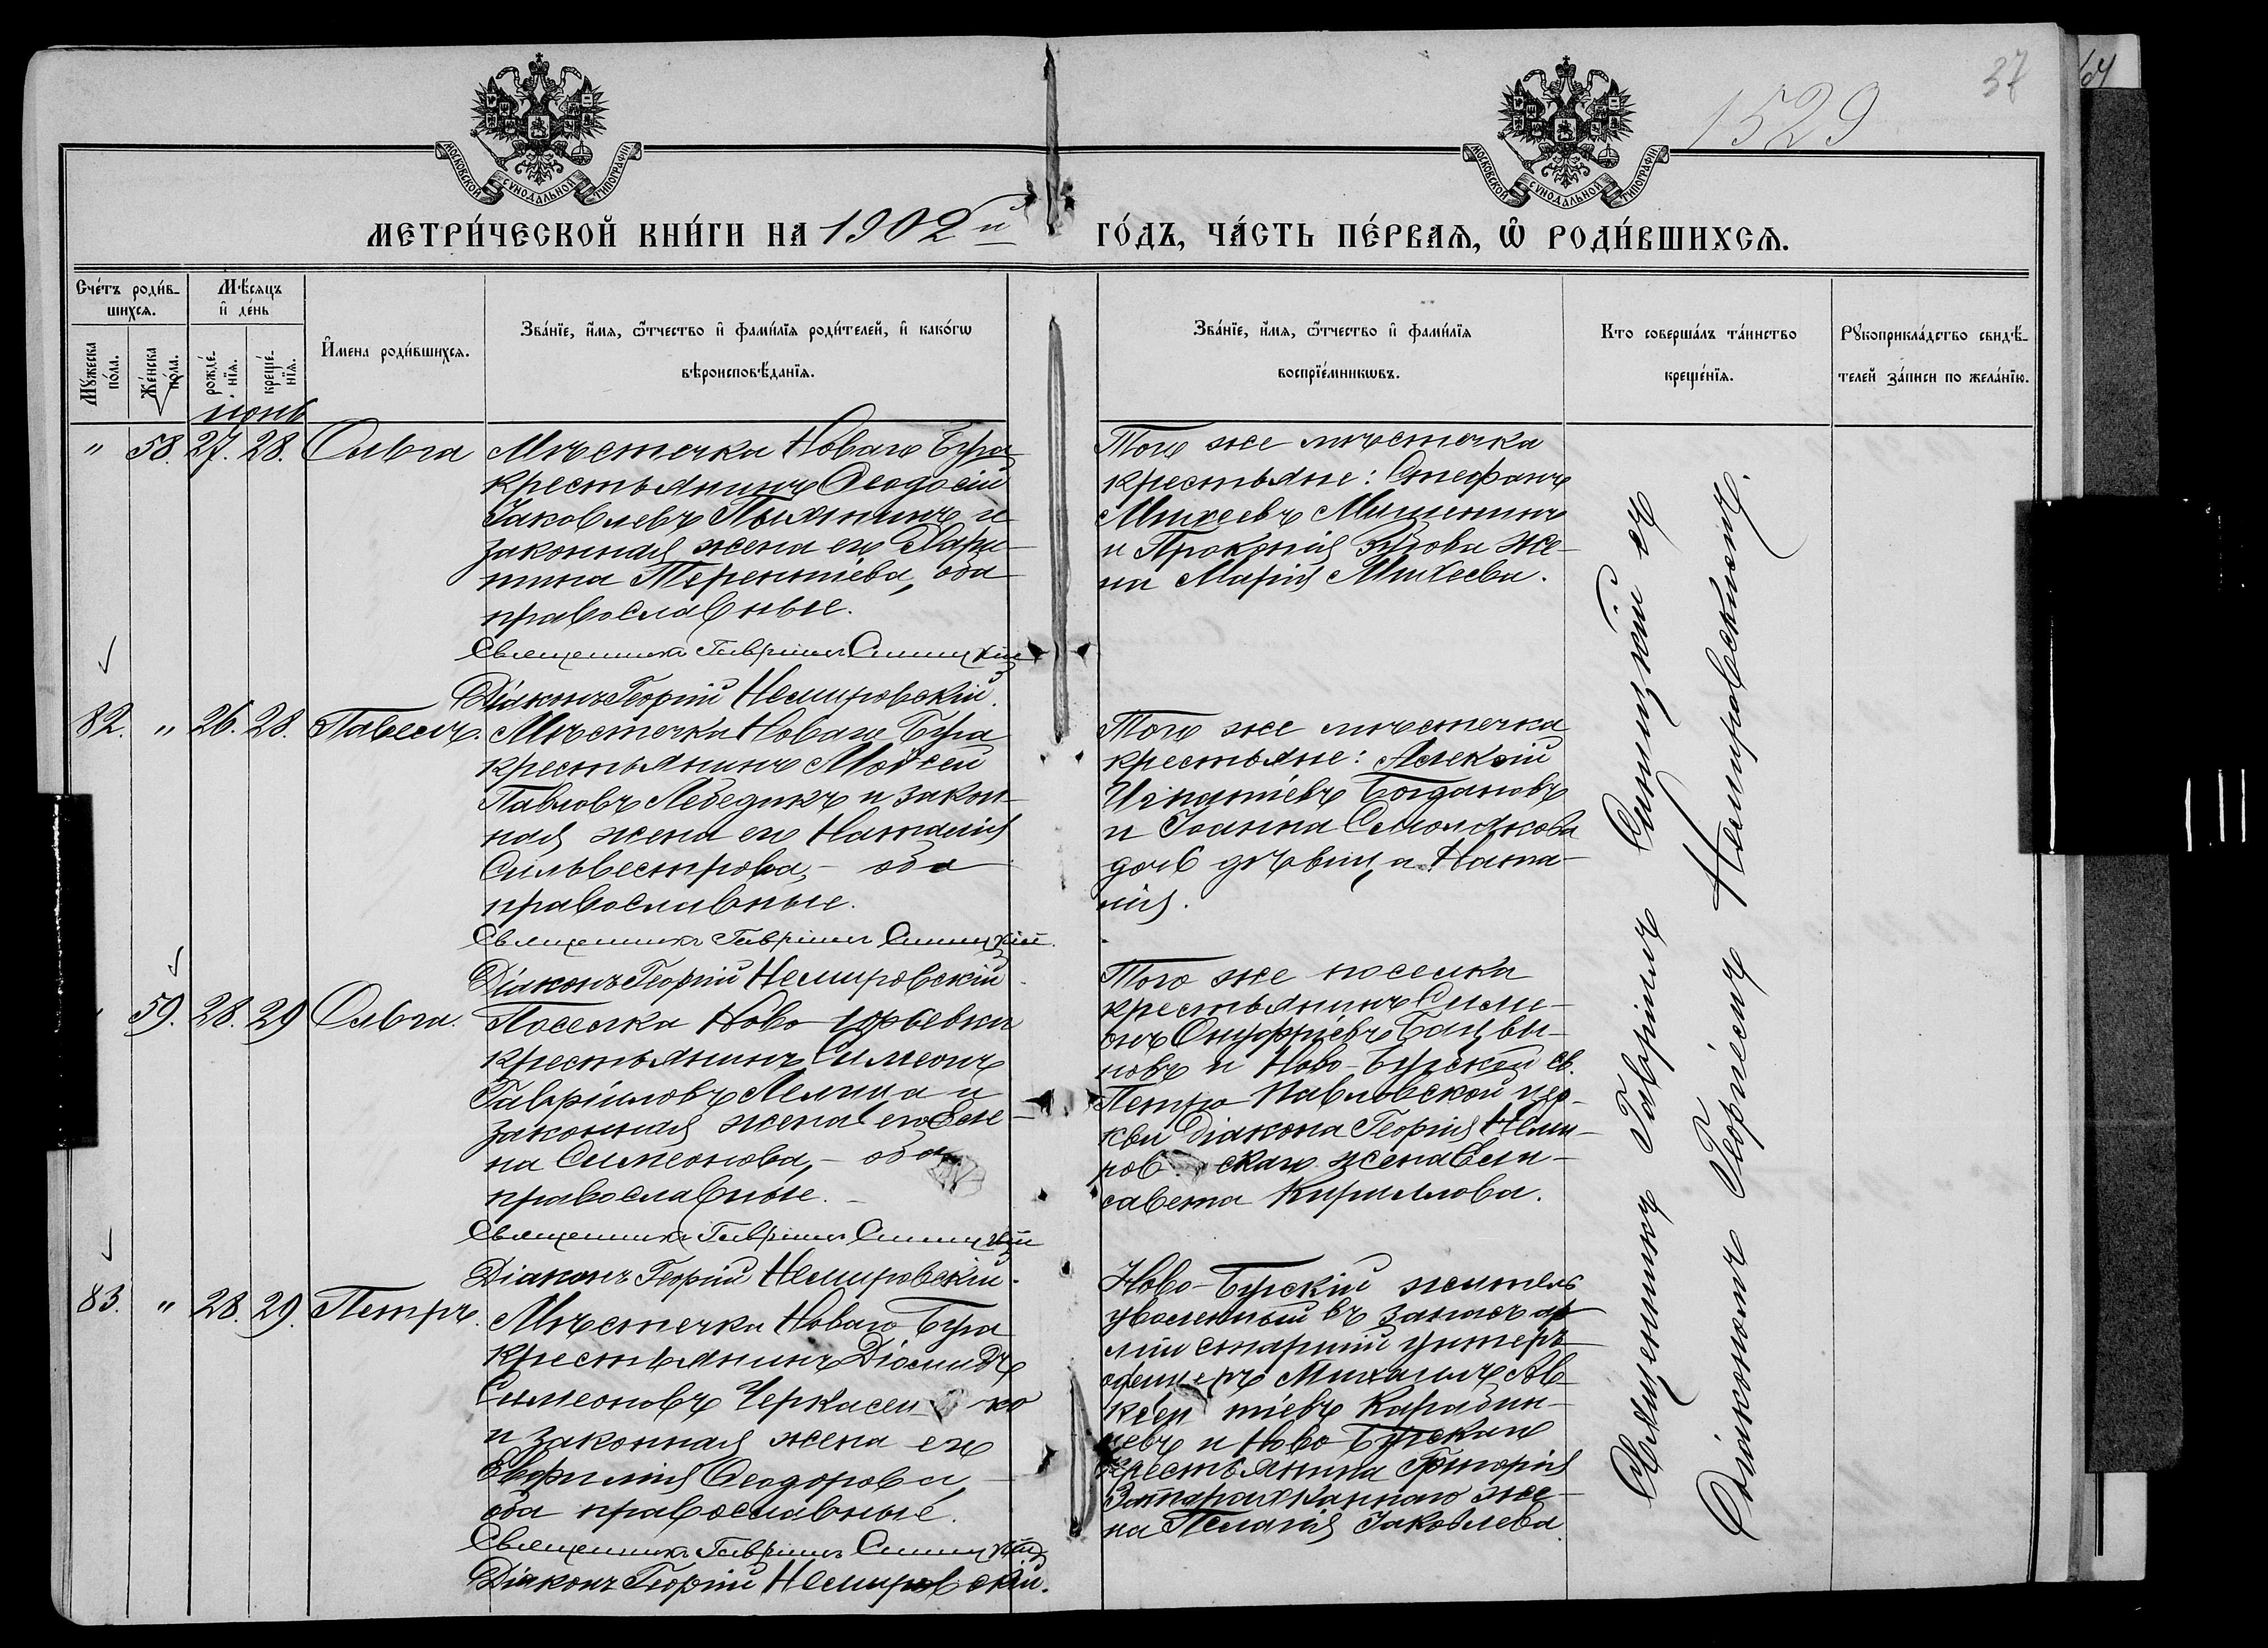 1529
37
МОСКОВСКОЙ СУНОДАЛЬНОЙ ТИПОГРАФІИ
МОСКОВСКОЙ СУНОДАЛЬНОЙ ТИПОГРАФІИ
МЕТРИ́ЧЕСКОЙ КНИ́ГИ НА 1902й ГО́ДЪ, ЧА́СТЬ ПЕ́РВАѦ, Ѡ҆ РОДИ́ВШИХСѦ.
Сче́тъ роди́в-
шихсѧ.
Мꙋжеска
по́ла.
Же́нска
по́ла.
Мѣ́сѧцъ
и҆ де́нь
рожде́-
нїѧ.
креще́-
нїѧ.
И҆мена роди́вшихсѧ.
Зва́нїе, и҆́мѧ, ѻ҆́тчество и҆ фами́лїѧ роди́телей, и҆ како́гѡ
вѣроисповѣ́данїѧ.
Зва́нїе, и҆́мѧ, ѻ҆́тчество и҆ фами́лїѧ
воспрїе́мникѡвъ.
Кто соверша́лъ та́инство
креще́нїѧ.
Рꙋкоприкла́дство свидѣ́-
телей за́писи по жела́нїю.
іюнь
" 58. 27. 28. Ольга
Мѣстечка Новаго Буга
крестьянинъ Ѳеодосій
Іаковлевъ и
законная жена его Хари-
тина Терентіева, оба
православные.
Священникъ Гавріилъ Синицкій
Діаконъ Георгій Немировскій.
Того же мѣстечка
крестьяне: Стефанъ
Михеевъ
и Прокопія Зубова же-
на Марія Михеева.
82. " 26. 28. Павелъ.
Мѣстечка Новаго Буга
крестьянинъ Моисей
Павловъ Лебедикъ и закон-
ная жена его Наталія
Сильвестрова, - оба
православные.
Священникъ Гавріилъ Синицкій.
Діаконъ Георгій Немировскій
Того же мѣстечка
крестьяне: Алексій
Игнатіевъ Богдановъ
и Іоанна Смолякова
дочь дѣвица Ната-
лія.
59. 28. 29 Ольга.
Поселка Ново-Юрьевки
крестьянинъ Симеонъ
Гавріиловъ и
законная жена его Еле-
на Симеонова, - оба
православные. -
Священникъ Гавріилъ Синицкій
Діаконъ Георгій Немировскій.
Того же поселка
крестьянинъ Симе-
онъ Онуфріевъ
новъ и Ново-Бугской св.
Петро Павловской цер-
кви діакона Георгія Неми-
ров скаго жена Ели-
савета Кириллова.
83. " 28. 29. Петръ.
Мѣстечка Новаго Буга
крестьянинъ Діомидъ
Симеоновъ Черкасен ко
и законная жена его
Евфимія Ѳеодорова, -
оба православные.
Священникъ Гавріилъ Синицкій
Діаконъ Георгій Немировскій.
Ново-Бугскій житель
уволенный въ запасъ ар
міи старшій унтеръ
офицеръ Михаилъ Ав
ксен тіевъ Карабин-
цевъ и Ново Бугскаго
крестьянина Григорія
же-
на Пелагія Іаковлева.
Священникъ Гавріилъ Синицкій съ
Діакономъ Георгіемъ Немировскимъ.